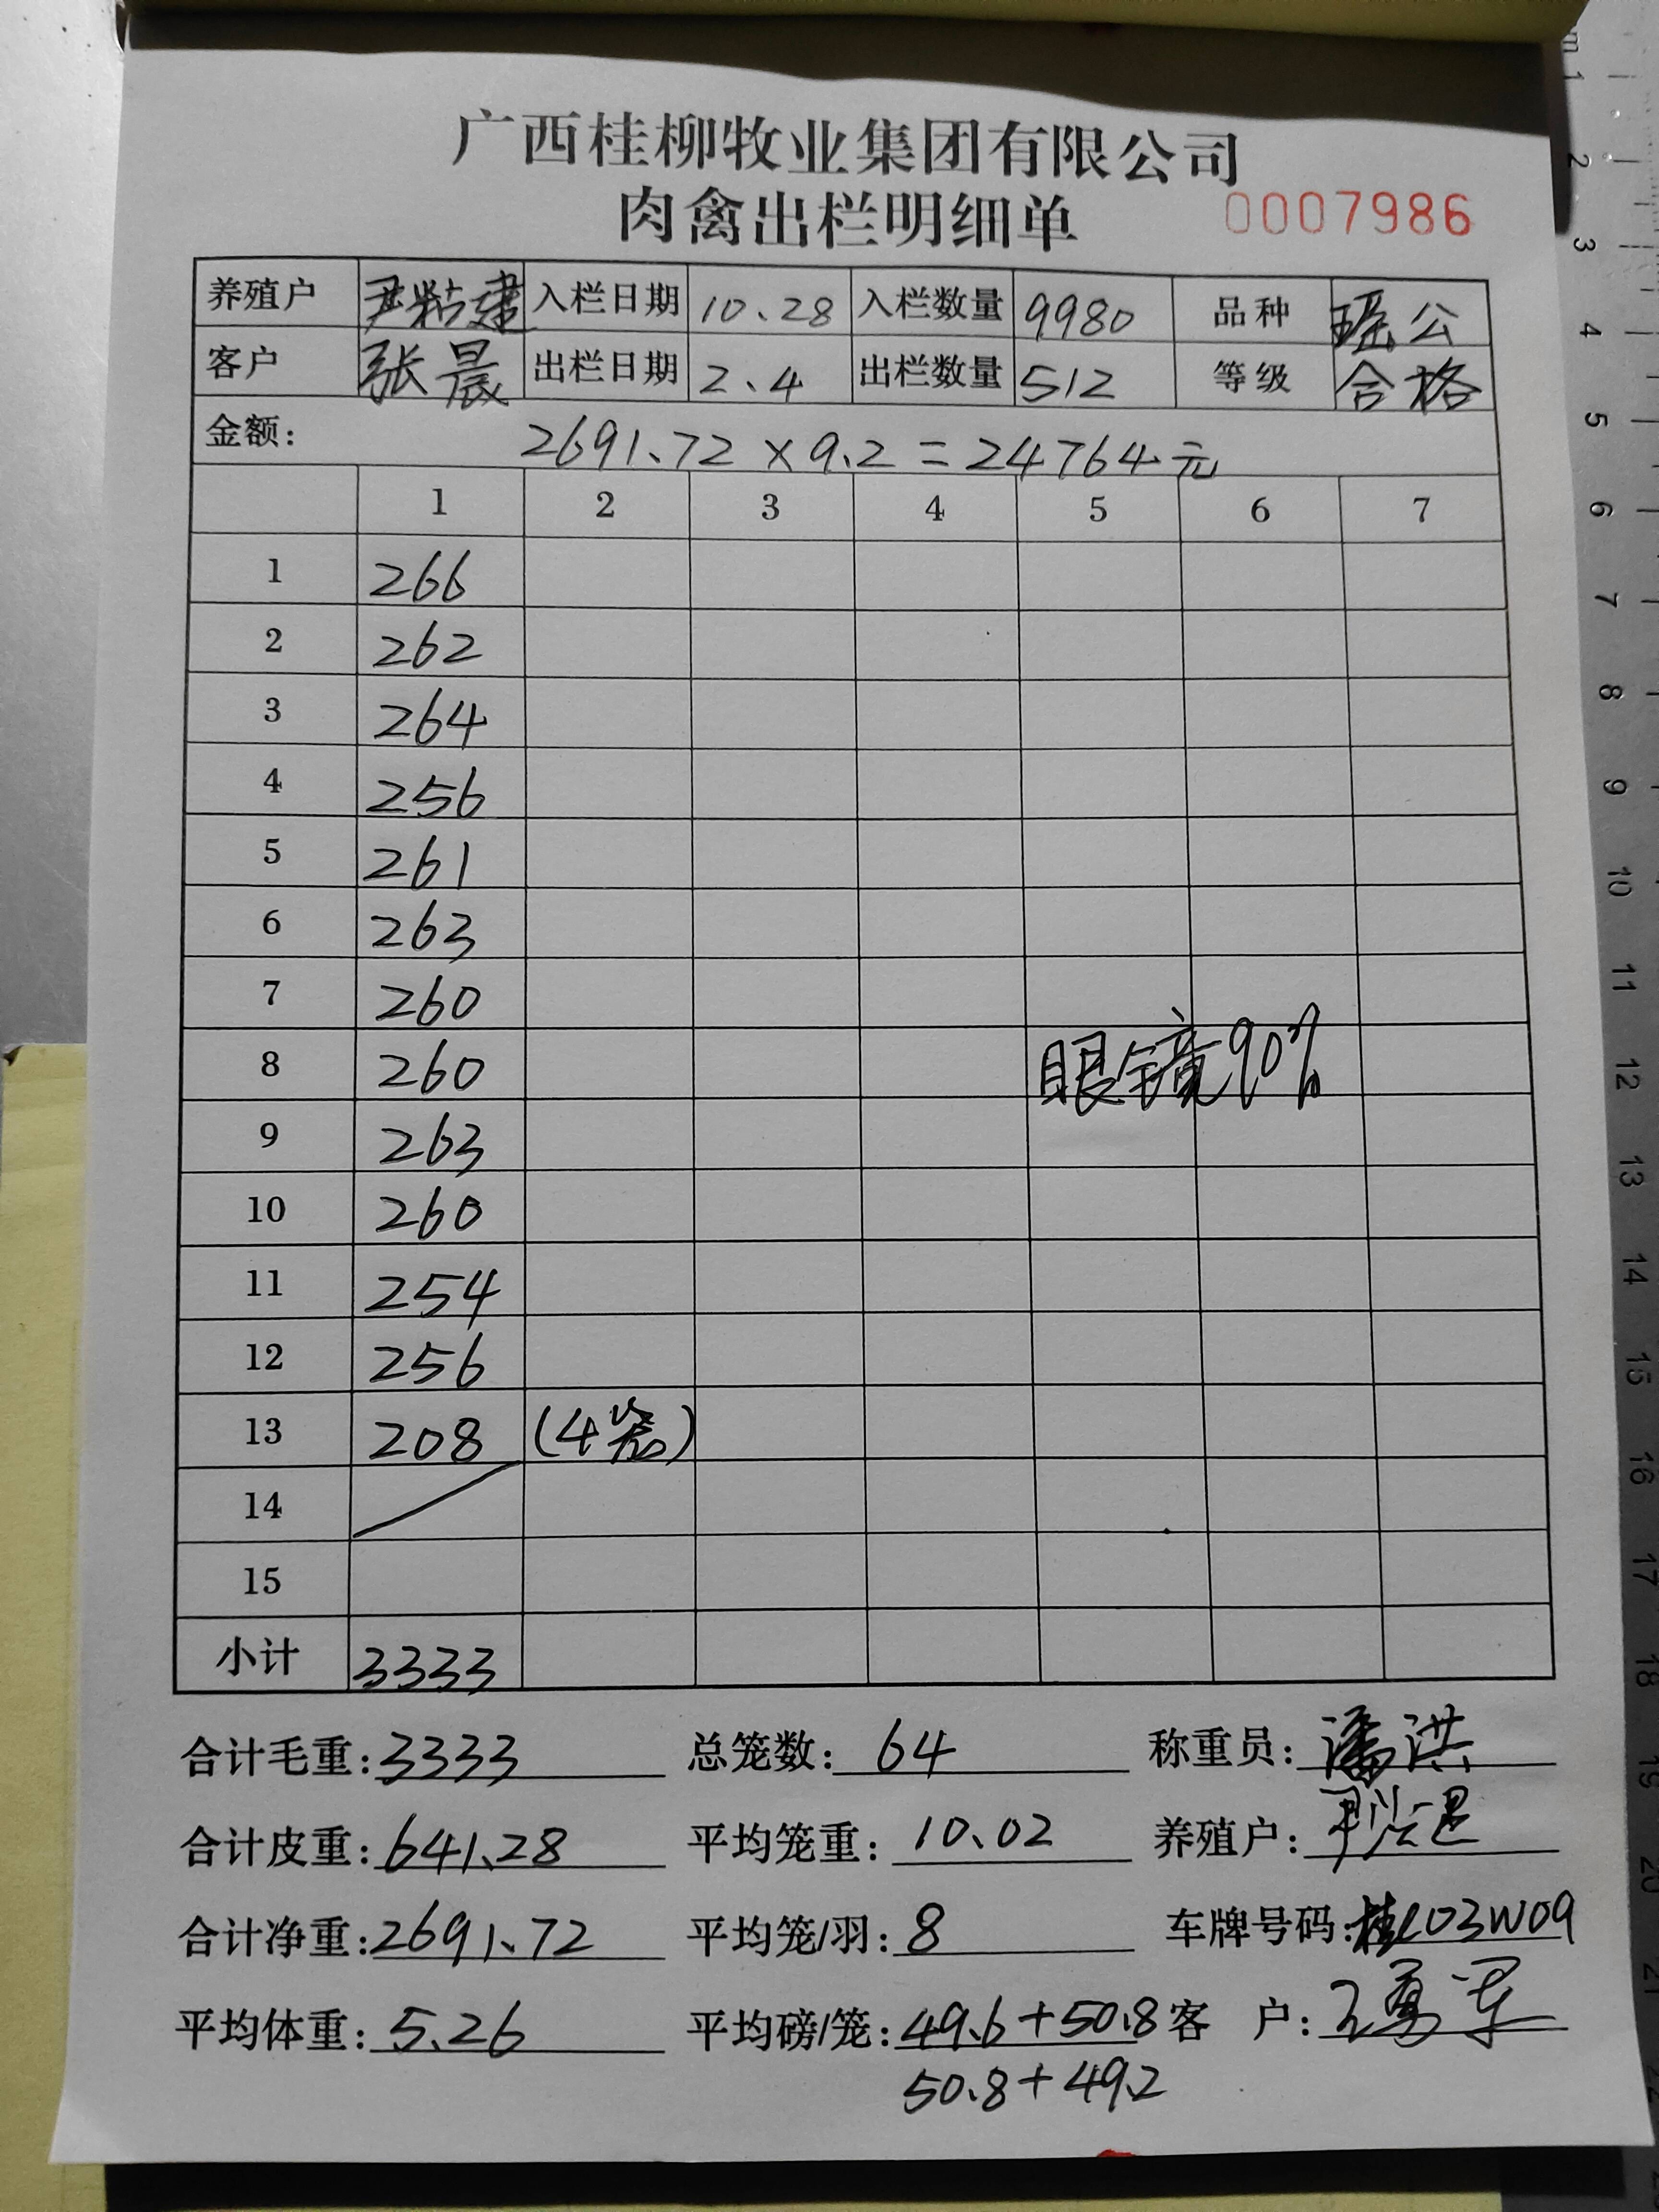 广西桂柳牧业集团有限公司
肉禽出栏明细单 0007986
养殖户 尹粘建 入栏日期 10、28 入栏数量 9980 品种 瑶公
客户 张晨 出栏日期 2、4 出栏数量 512 等级 合格
金额: 2691、72 × 9.2 = 24764元
1 2 3 4 5 6 7
1 266
2 262
3 264
4 256
5 261
6 263
7 260
8 260 眼镜90%
9 263
10 260
11 254
12 256
13 208 (4笼)
14
15
小计 3333
合计毛重: 3333 总笼数: 64 称重员: 潘洪
合计皮重: 641、28 平均笼重: 10、02 养殖户:
合计净重: 2691、72 平均笼/羽: 8 车牌号码: 桂L03W09
平均体重: 5.26 平均磅/笼: 49.6+50.8 客 户:
50.8+49.2